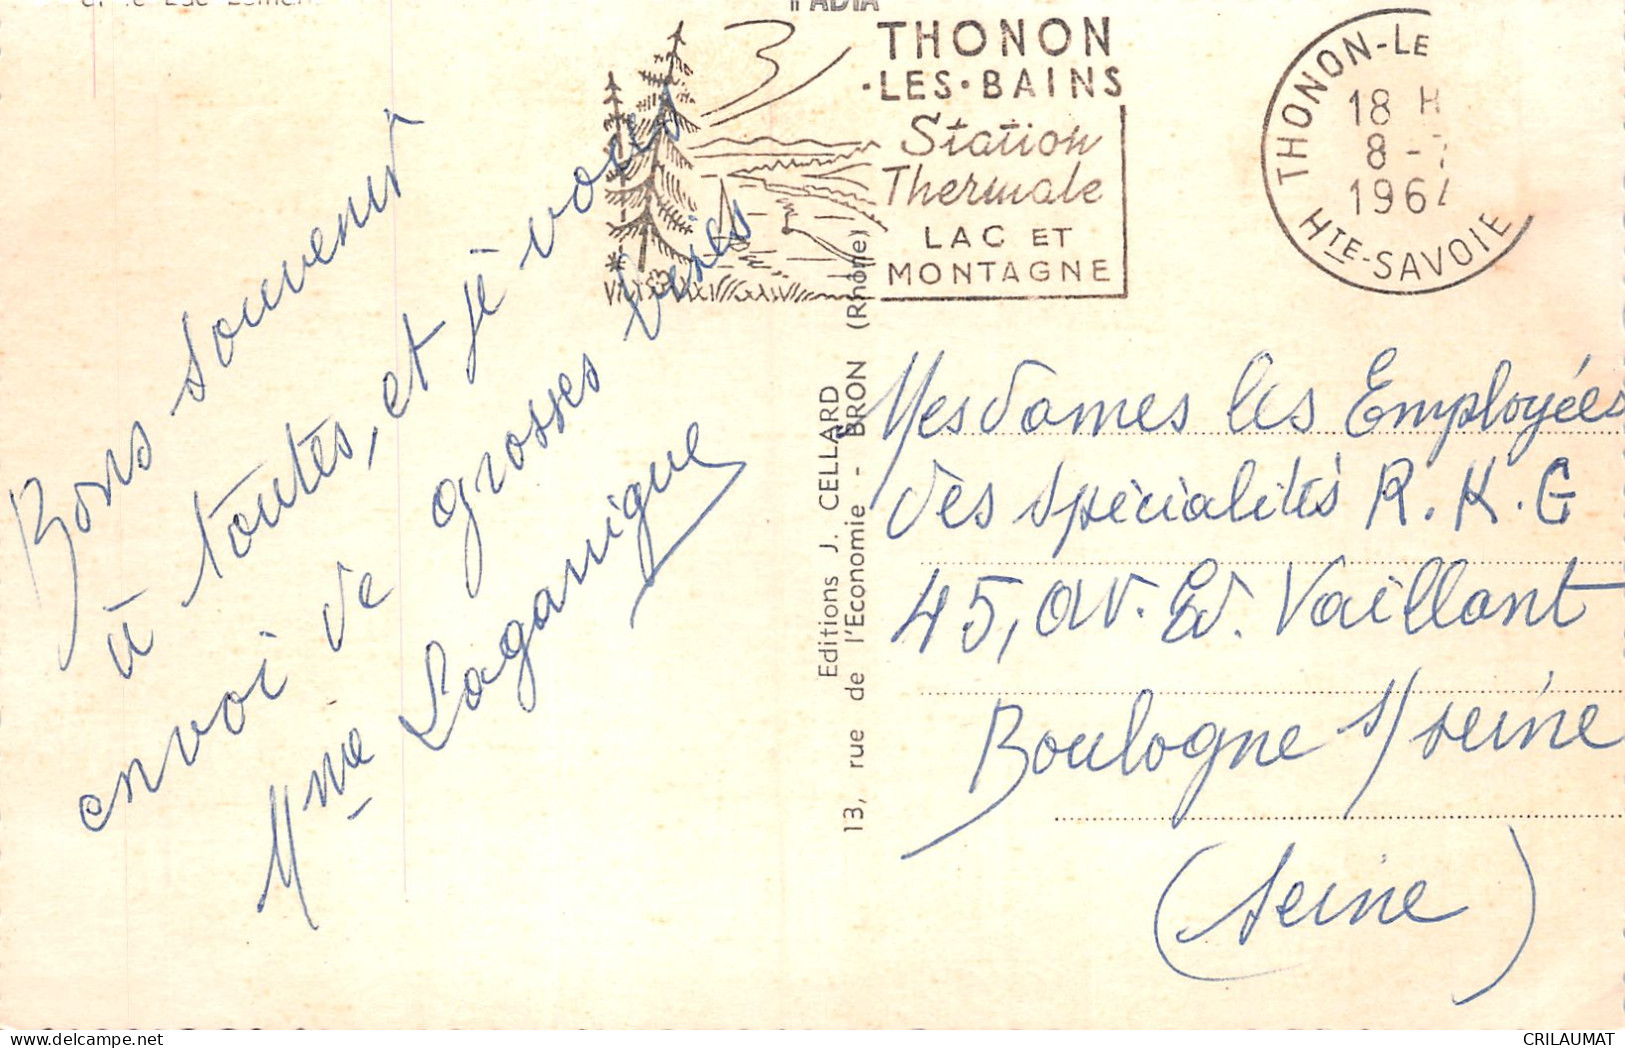 et le Lac Léman
THONON
·LES·BAINS
Station
Thermale
LAC ET
MONTAGNE
THONON-LE
18 H
8 -7
1964
HTE-SAVOIE
Bons souvenirs
à toutes, et je vous
envoi de grosses bises
Mme Lagarrigue
Editions J. CELLARD
13, rue de l'Economie - BRON (Rhône)
Mesdames les Employées
des spécialités R.K.G
45, av. Ed. Vaillant
Boulogne s/ seine
(seine)
CRILAUMAT